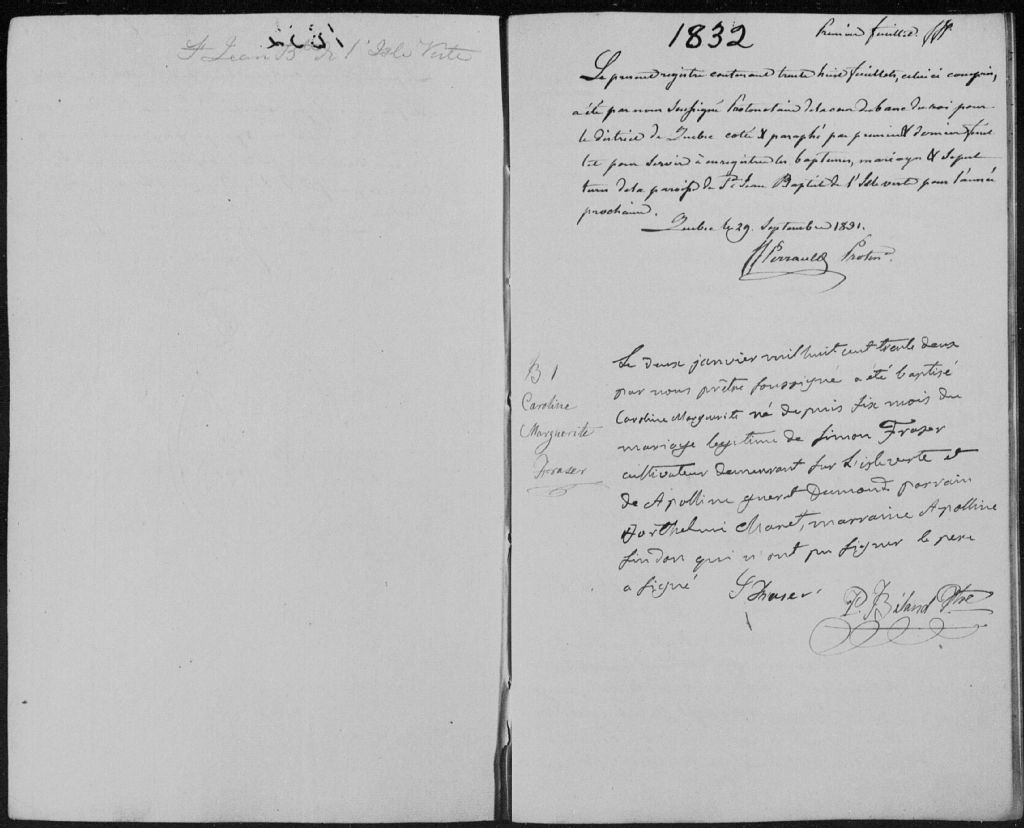 St Jean Bte de l'Isle Verte
1832
Premier feuillet
Le present registre contenant trente huit feuillets, celui ci compris,
a été par nous soussigné Protonotaire de la cour du banc du roi pour
le district de Quebec coté & paraphé par premier & dernier feuil
let pour servir à enregistrer les baptemes, mariages & sepul
tures de la paroisse de St Jean Baptiste de l'Isle verte pour l'année
prochaine.
Quebec le 29. Septembre 1831.
Perrault Proton.
B 1
Caroline
Marguerite
Fraser
Le deux janvier mil huit cent trente deux
par nous prêtre soussigné a été baptisé
Caroline Marguerite né depuis six mois du
mariage legitime de Simon Fraser
cultivateur demeurant sur l'isle verte et
de Apolline Dumond parrain
Barthelemi marraine Apolline
qui n'ont pu signer le pere
a signé
S Fraser
P. Béland Ptre